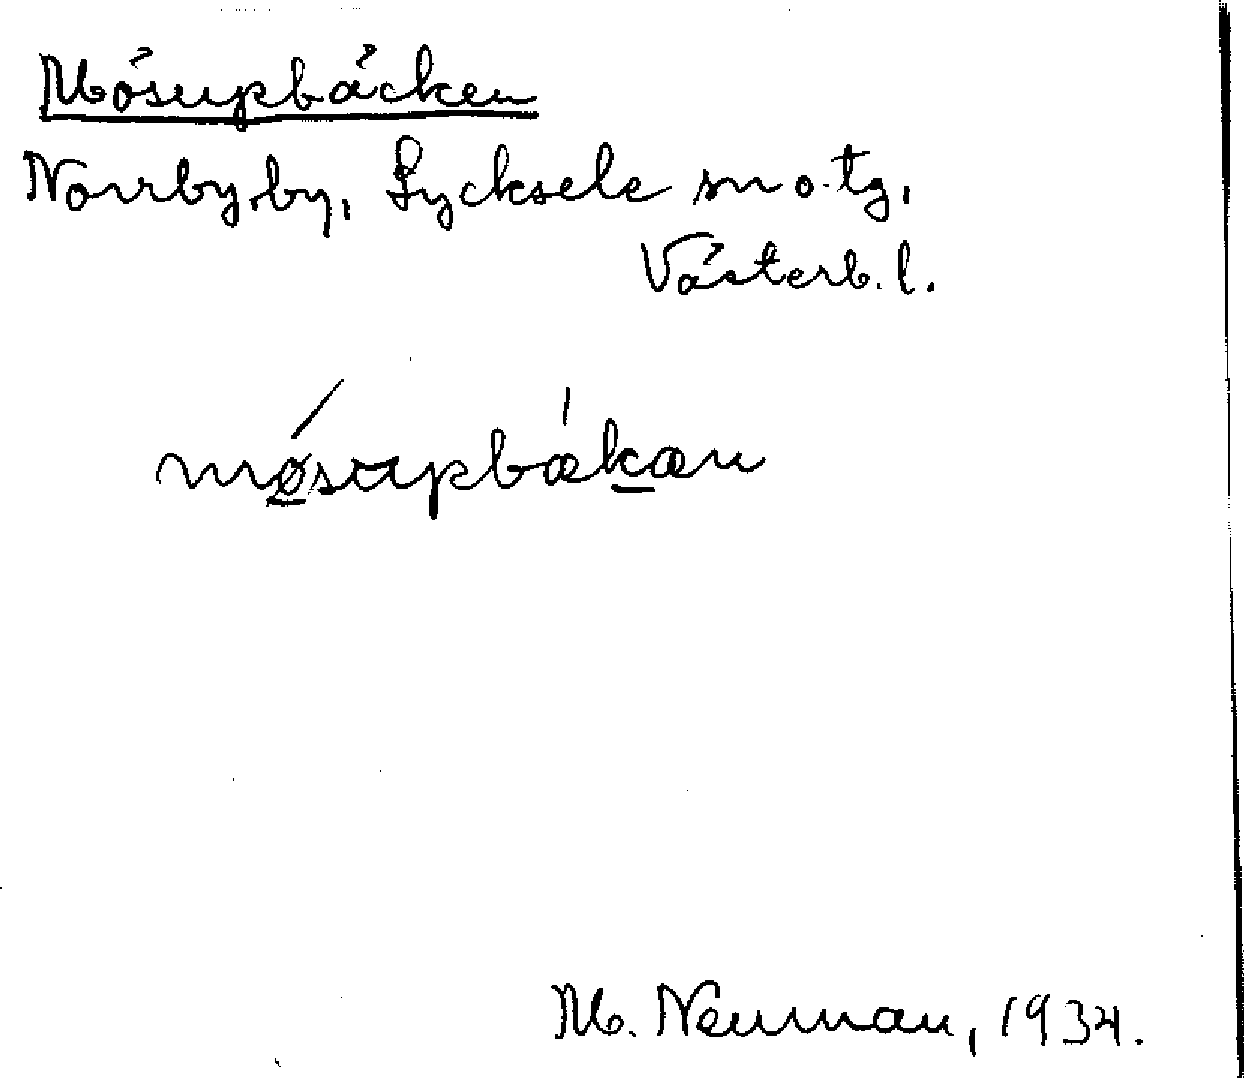 Mösupbäcken
Norrby by, Lycksele sn o. tg,
Västerb. l.
mø̲supbæk̲æn
M. Neuman, 1934.